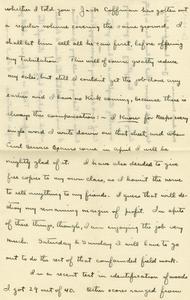 whether I told you - Jack Coffman has gotten out
a regular volume covering the same ground. I
shall let him sell all he can first, before offering
my Tabulation. This will of course greatly reduce
my sales, but still I couldn't get the job done any
earlier and I have no kick coming, because there is
always this compensation: - I know for
single word I put down on that sheet, and when
Civil Service Exams come in April I will be
mighty glad of it. I have also decided to give
free copies to my own class, as I haven't the nerve
to sell anything to my friends. I guess that will de-
stroy my remaining margin of profit. In spite
of these things, though, I am enjoying the job very
much. Saturday & Sunday I will have to go
out to do the rest of that confounded field work.
In a recent test in identification of woods
I got 29 out of 40. Other scores ranged from